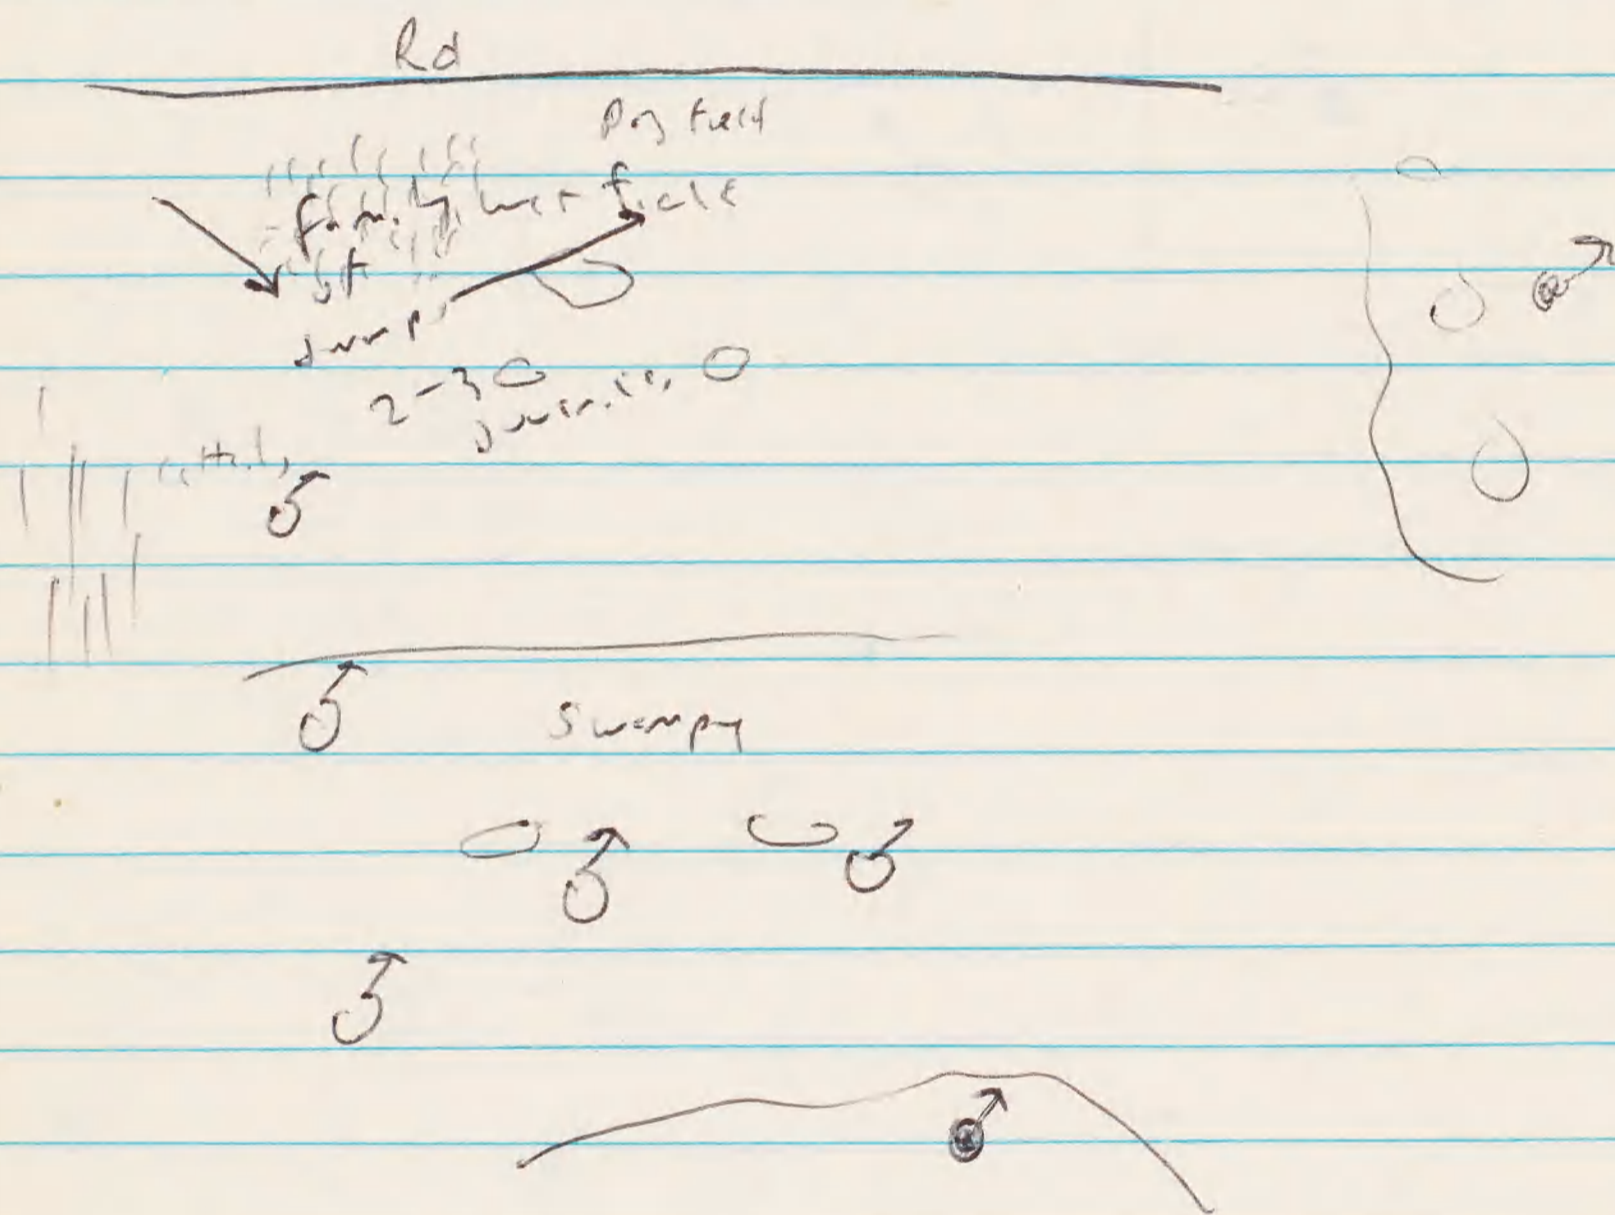 Rd
field
family wet field
st
dump
2-3
juveniles
cattails
♂
♂
Swampy
♂ ♂
♂
♂
♂